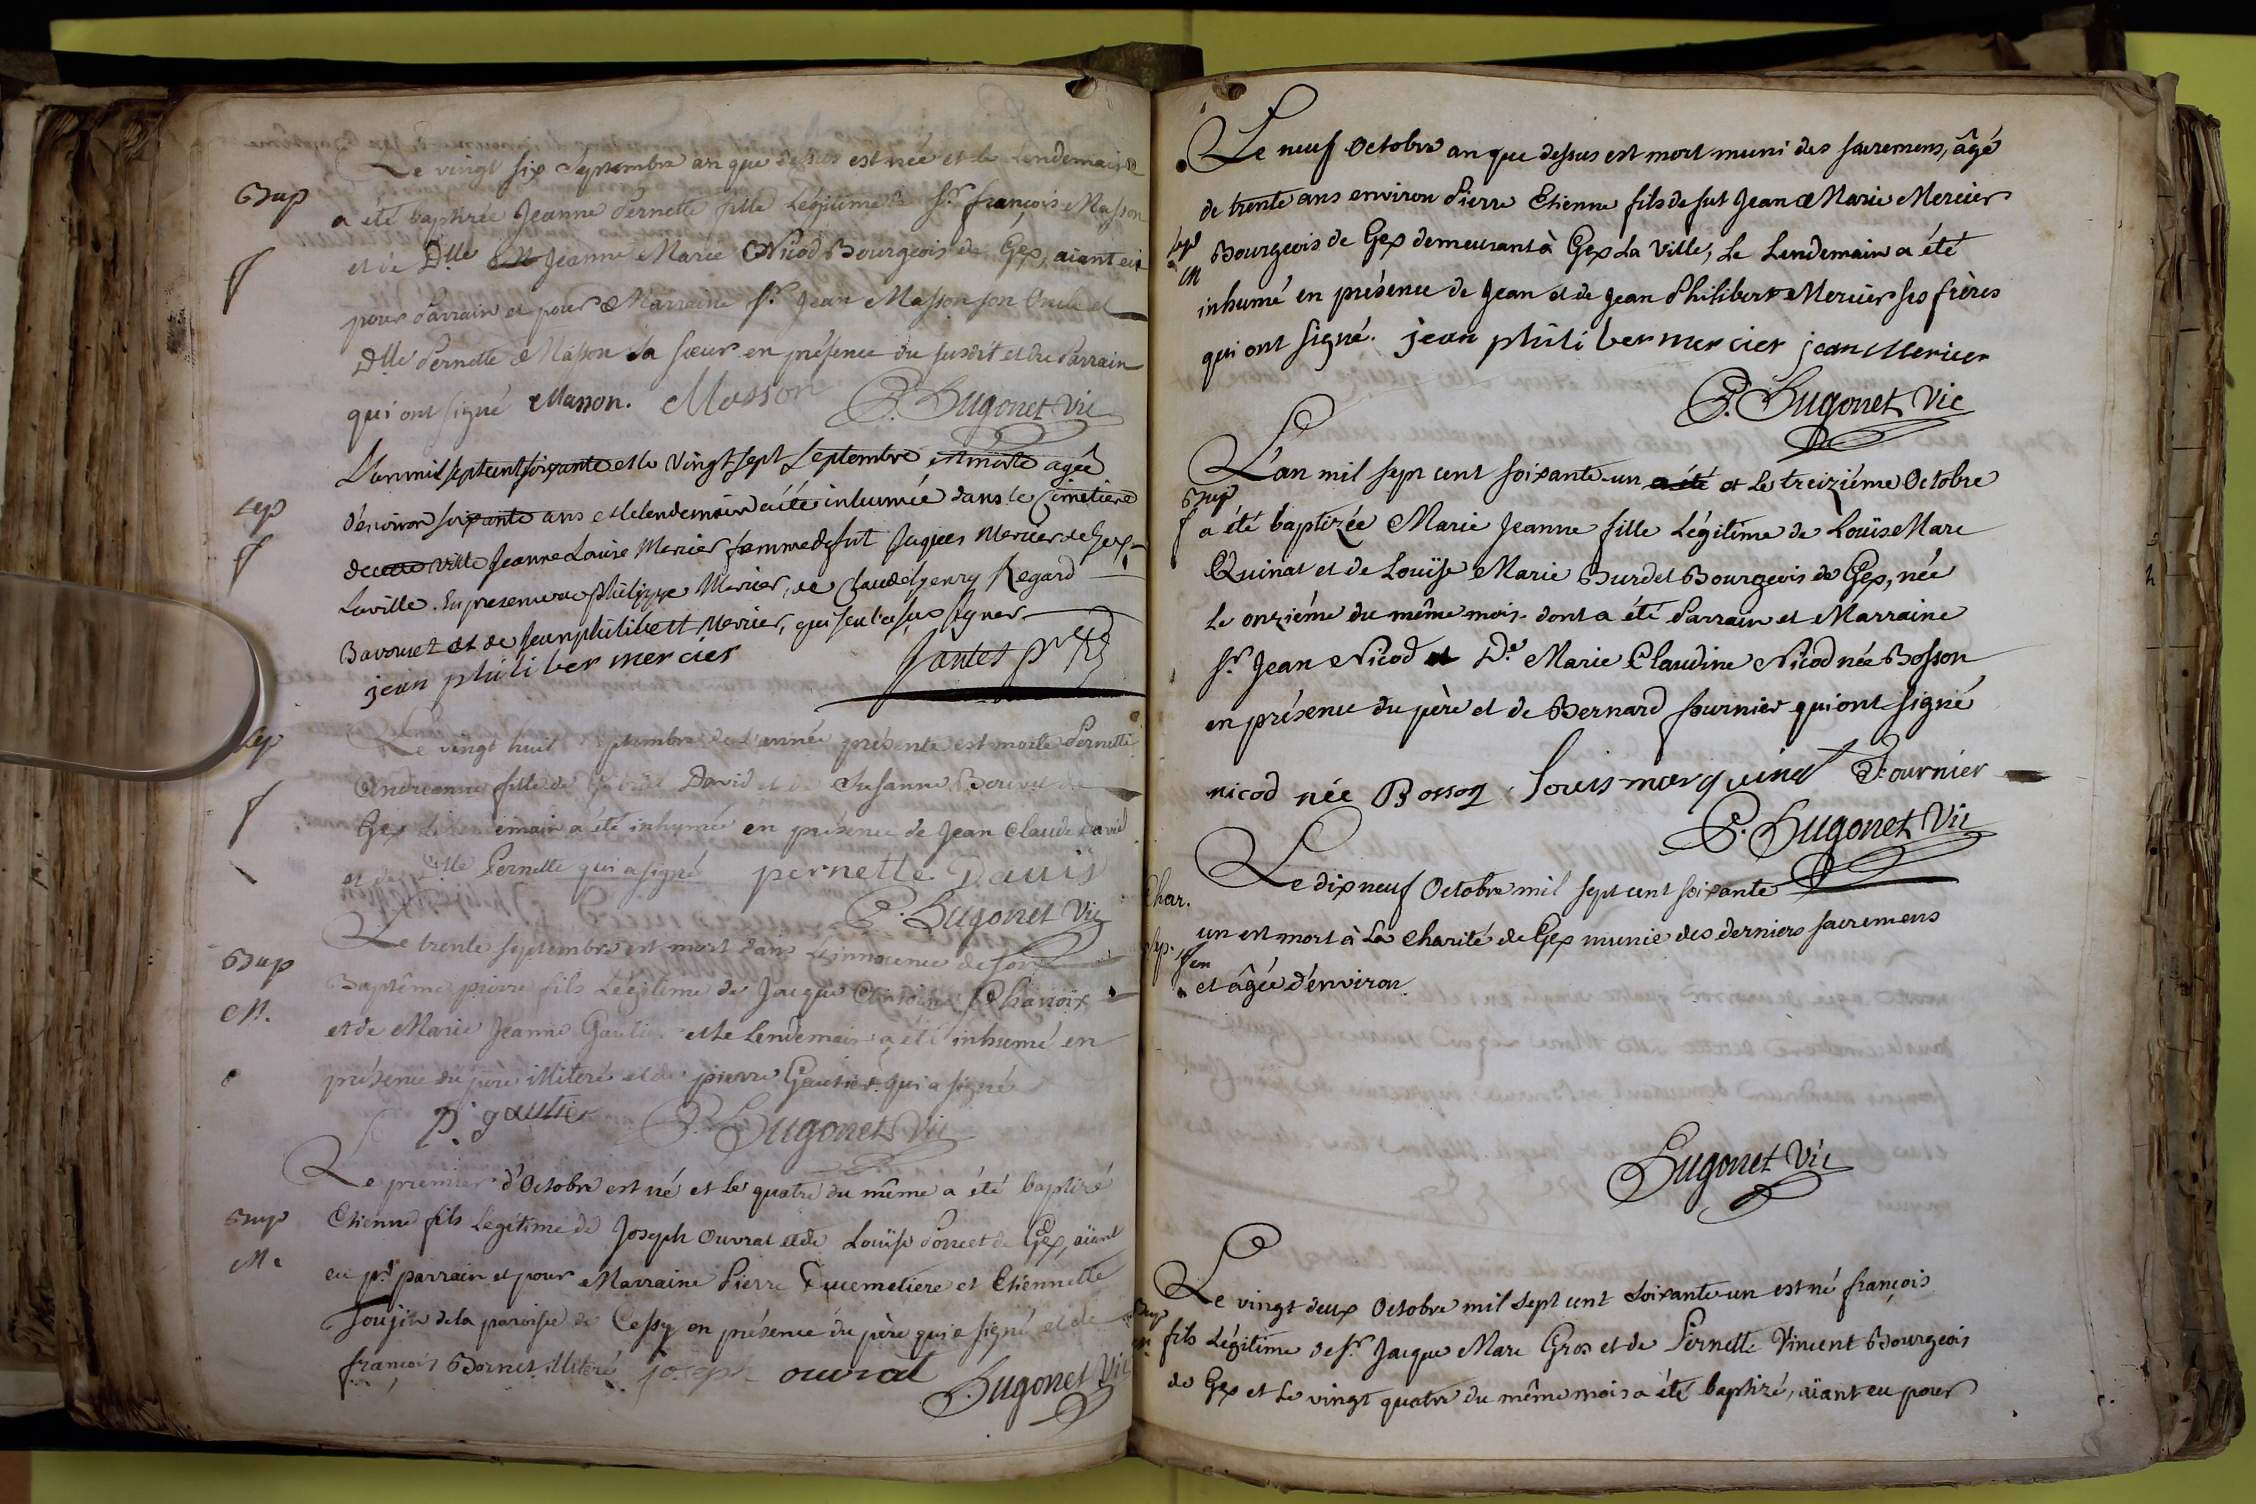 Le vingt six Septembre an que dessus est née et le Lendemain
Bap
a été baptisée Jeanne Pernette fille Légitime de Sr. françois Masson
et de Dlle Jeanne Marie Nicod Bourgeois de Gex, aiant eu
f
pour Parrain et pour Marraine Sr. Jean Masson son Oncle et
Dlle Pernette Masson sa sœur en présence du susdit et du Parrain
qui ont signé Masson. Masson P. Hugonet Vic
L'an mil sept cent soixante et le vingt sept Septembre est morte agée
Sep
d'environ soixante ans et le lendemain a été inhumée dans le Cimetiere
f
de cette ville Jeanne Louise Mercier femme de fut Jaques Mercier de Gex
Laville. En presence de philippe Mercier, de Claude henry Regard
et de Jean philibert Mercier, qui seul a sçu signer
jean philiber mercier
Sep
Le vingt huit Septembre de l'année présente est morte Pernette
Andreanne fille de David et de Susanne Bouvet de
f
Gex le lendemain a été inhumée en présence de Jean Claude David
et de Dlle Pernette qui a signé pernette David
P. Hugonet Vic
Le trente Septembre est mort dans L'innocence de son
Bap
Baptême pierre fils Légitime de Jacque Chanoix
M.
et de Marie Jeanne Gautier et le Lendemain a été inhumé en
présence du père illiteré et de pierre Gautier qui a signé
p. gautier P. Hugonet Vic
Le premier d'Octobre est né et le quatre du même a été baptisé
Bap
Etienne fils Légitime de Joseph Ouvrat et de Louïse Poncet de Gex, aïant
M.
eu pr. parrain et pour Marraine Pierre Ducimetiere et Etiennette
de la paroisse de Cessy en présence du père qui a signé et de
françois Bornet illiteré joseph ouvrat
Hugonet Vic
Le neuf Octobre an que dessus est mort muni des sacremens, âgé
de trente ans environ Pierre Etienne fils de fut Jean Marie Mercier
Sep
M
Bourgeois de Gex demeurant à Gex La Ville, Le Lendemain a été
inhumé en présence de Jean et de Jean Philibert Mercier ses frères
qui ont signé. jean philiber mercier jean Mercier
P. Hugonet Vic
L'an mil sept cent soixante-un a été et Le treiziéme Octobre
Bap
f
a été baptizée Marie Jeanne fille Légitime de Louïs Marc
Quinat et de Louïse Marie Burdet Bourgeois de Gex, née
Le onziéme du même mois. dont a été Parrain et Marraine
Sr. Jean Nicod et De. Marie Claudine Nicod née Bosson
en présence du père et de Bernard fournier qui ont signé
nicod née Bosson Louis marc quinat Fournier
P. Hugonet Vic
Le dix neuf Octobre mil sept cent soixante
Char.
un est mort à La Charité de Gex munie des derniers sacremens
Sep.
et âgée d'environ
Hugonet Vic
Le vingt deux Octobre mil sept cent soixante-un est né françois
Bap
m
fils Légitime de Sr. Jacque Marc Gros et de Pernette Vincent Bourgeois
de Gex et Le vingt quatre du même mois a été baptizé, aïant eu pour